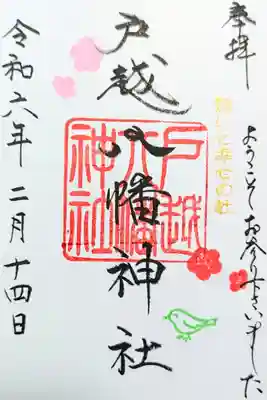 奉拝
ようこそお参り下さいました
戸越八幡神社
戸越八幡神社
令和六年 二月 十四日